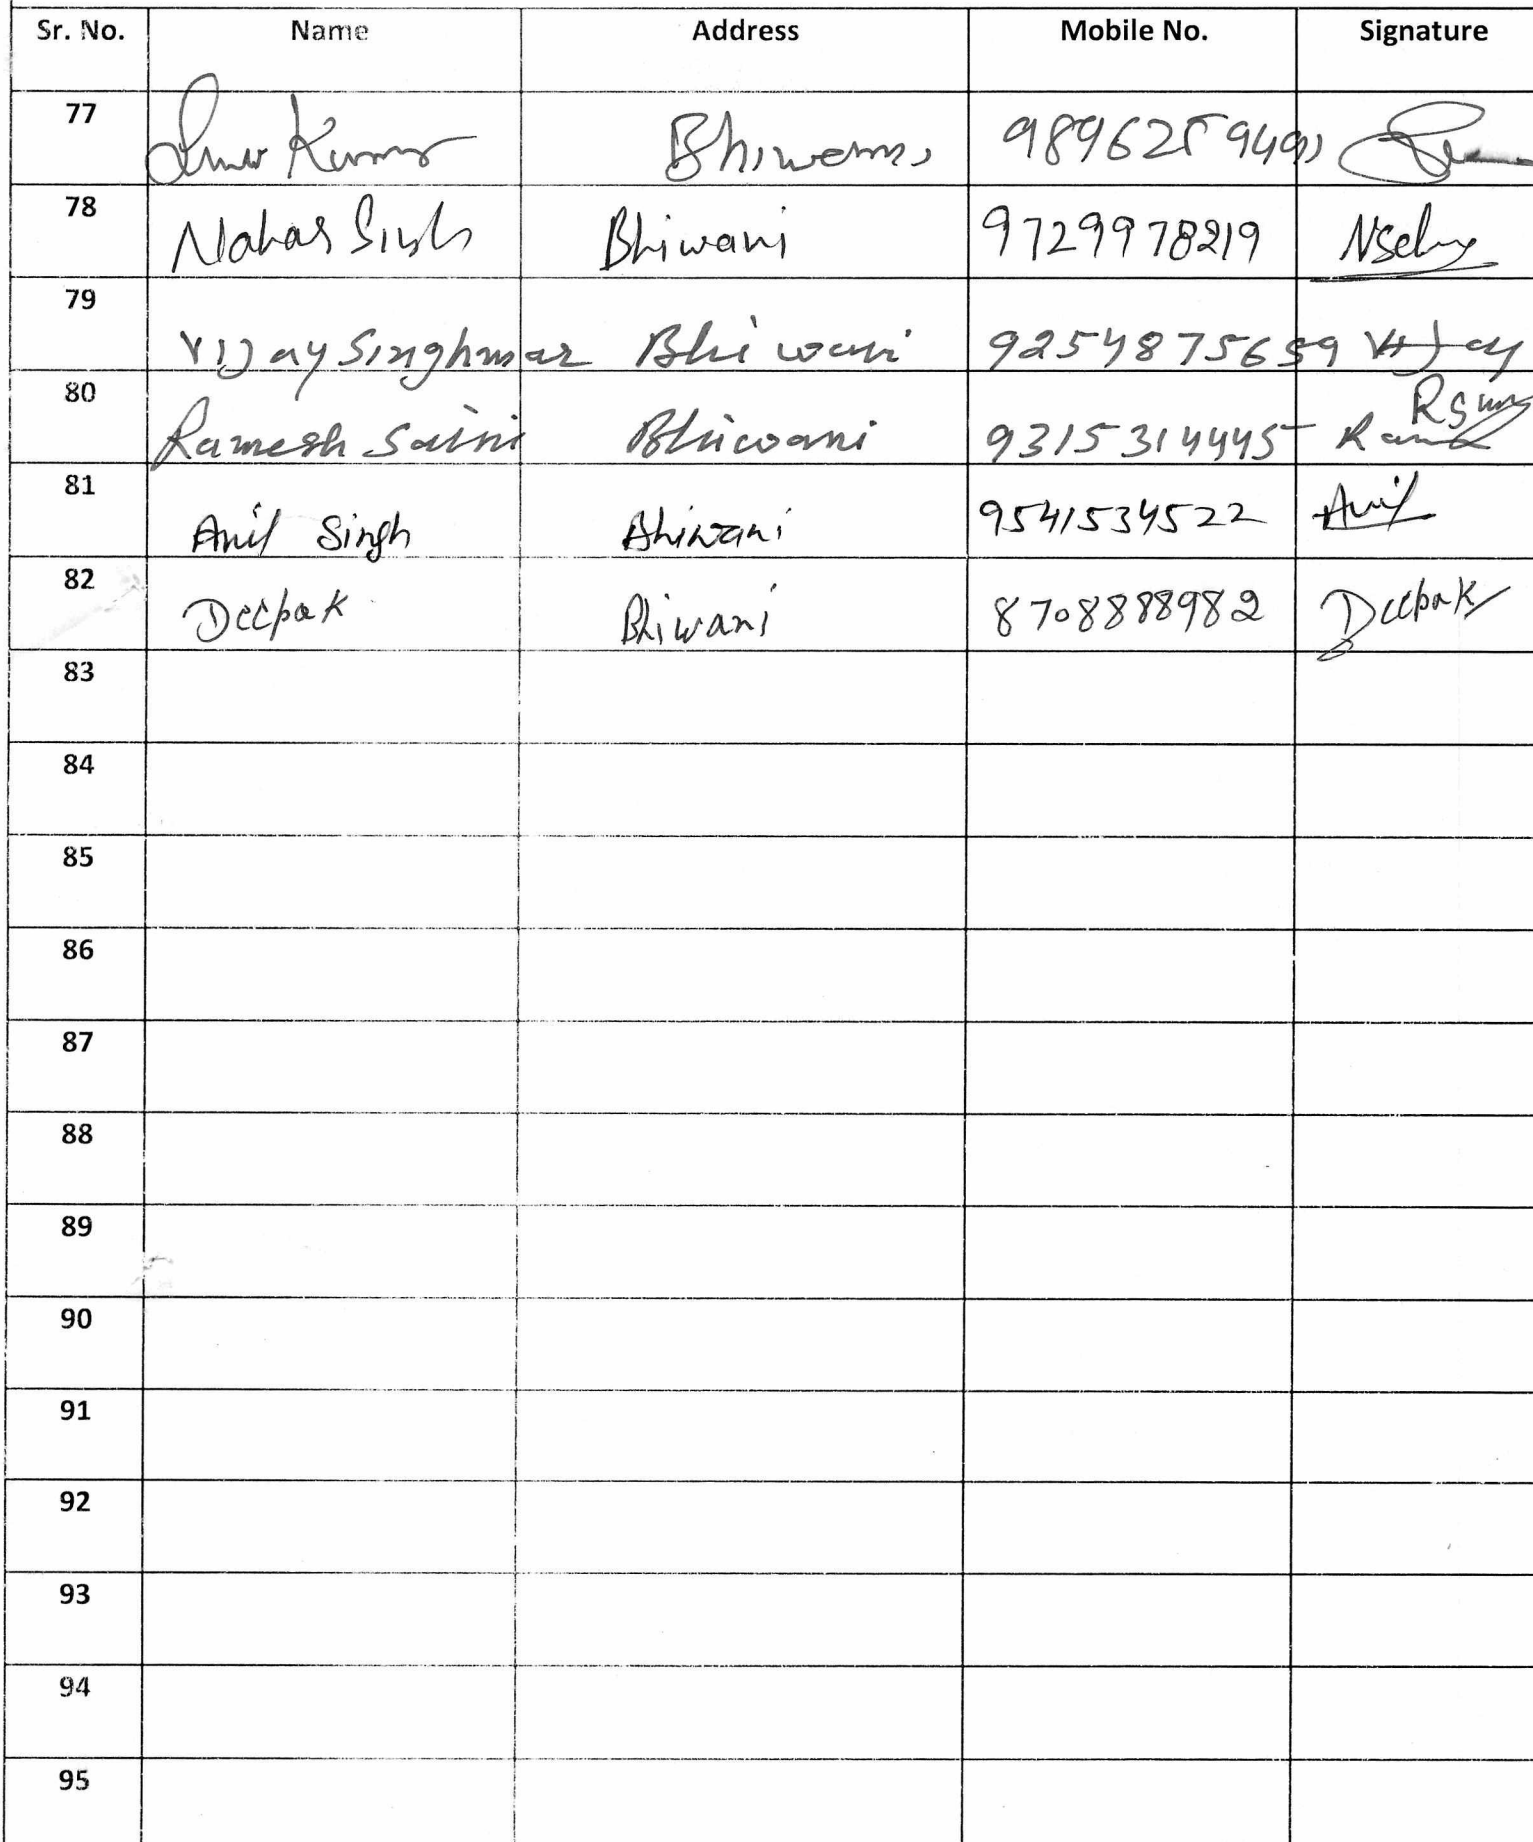 Sr. No. Name Address Mobile No. Signature
77 Kumar Bhiwani
78 Nahar Singh Bhiwani 9729978219
79 Vijay Singhmar Bhiwani 9254875659 Vijay
80 Ramesh Saini Bhiwani 9315314445
81 Anil Singh Bhiwani 9541534522 Anil
82 Deepak Bhiwani 8708888982 Deepak
83
84
85
86
87
88
89
90
91
92
93
94
95